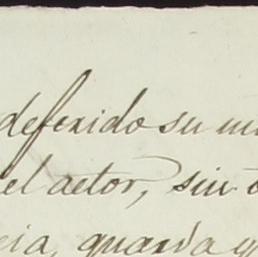 defenido su
el actor, sin
cia, guarda y